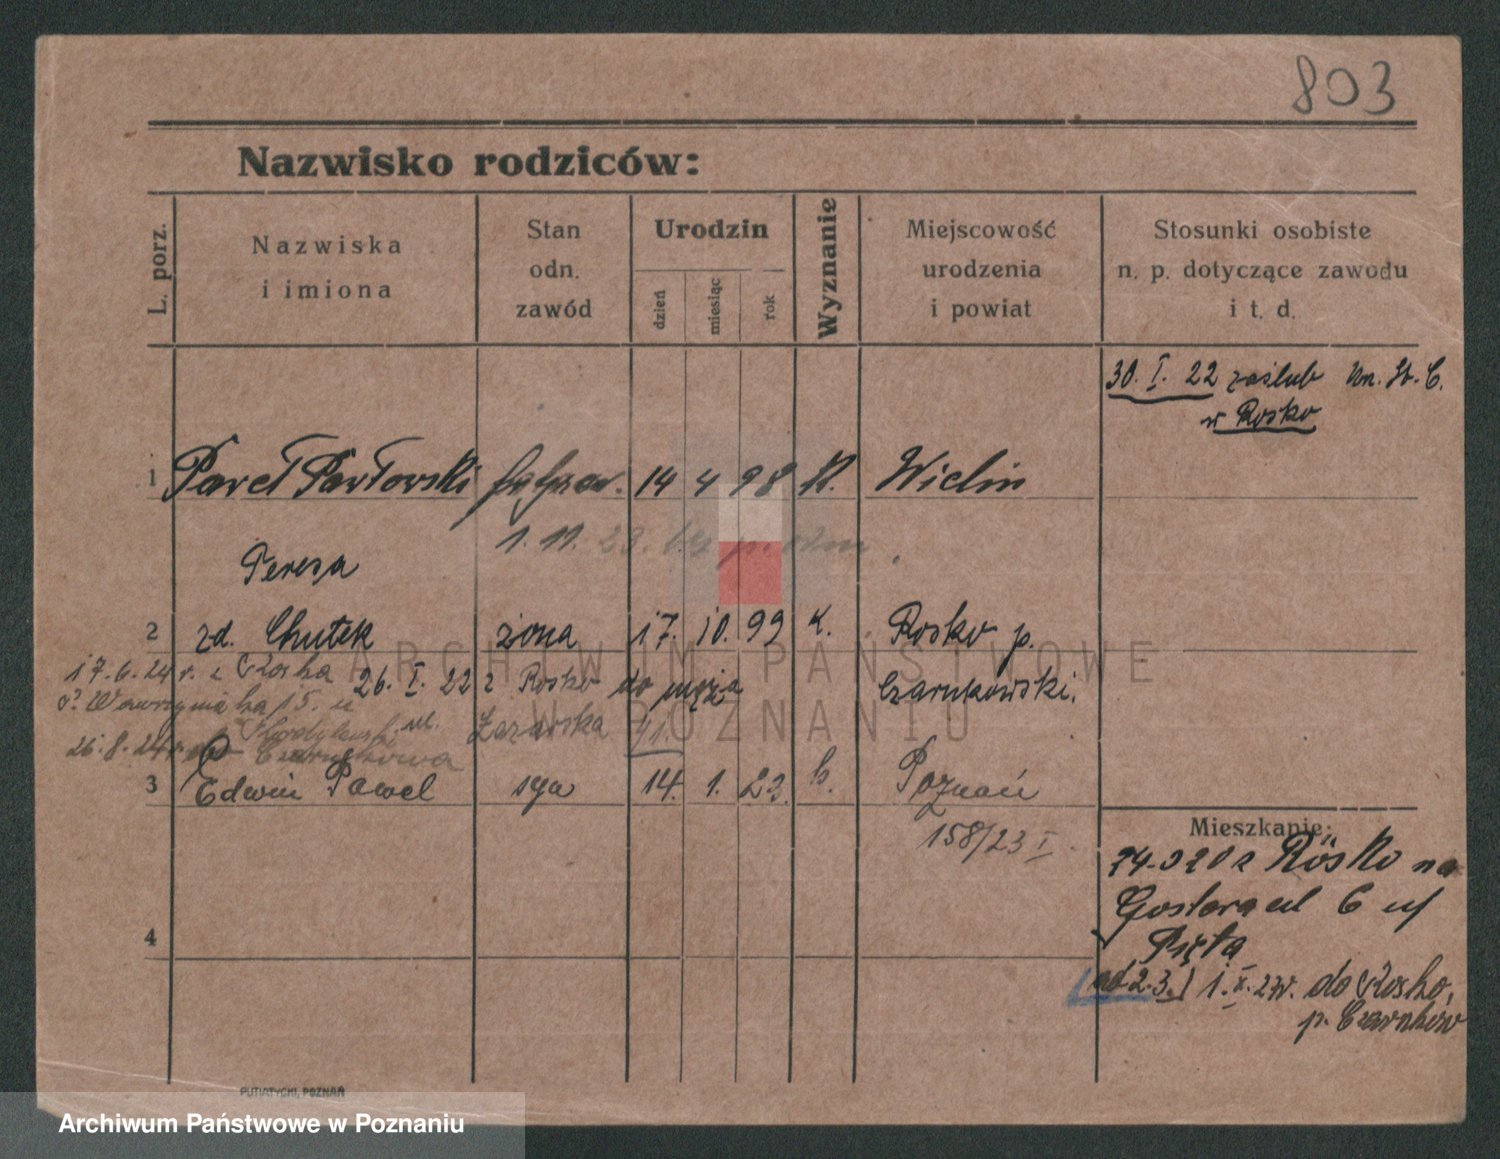 803
Nazwisko rodziców:
L. porz.
Nazwiska
i imiona
Stan
odn.
zawód
Urodzin
dzień
miesiąc
rok
Wyznanie
Miejscowość
urodzenia
i powiat
Stosunki osobiste
n. p. dotyczące zawodu
i t. d.
30. I. 22 zaślub Urz. St. C.
w Rosko
1 Paweł Pawłowski 14 4 98 K. Wielin
1. 11. 23.
Teresa
2 zd. Chutek żona 17. 10. 99 K. Rosko p.
Czarnkowski.
17.6.24 r. z Roska
26. I. 22 z Rosko do męża
Wawrzyniaka 15. u
ul. Łazarska 41.
26.8.24 Czarnkowa
3 Edwin Paweł syn 14. 1. 23. K. Poznań
158/23 I.
4
Mieszkanie:
z Rosko na
6 u/
od 2.3.) 1. X. 27r. do Roska,
p. Czarnków
PUTIATYCKI, POZNAŃ
ARCHIWUM PAŃSTWOWE
W POZNANIU
Archiwum Państwowe w Poznaniu